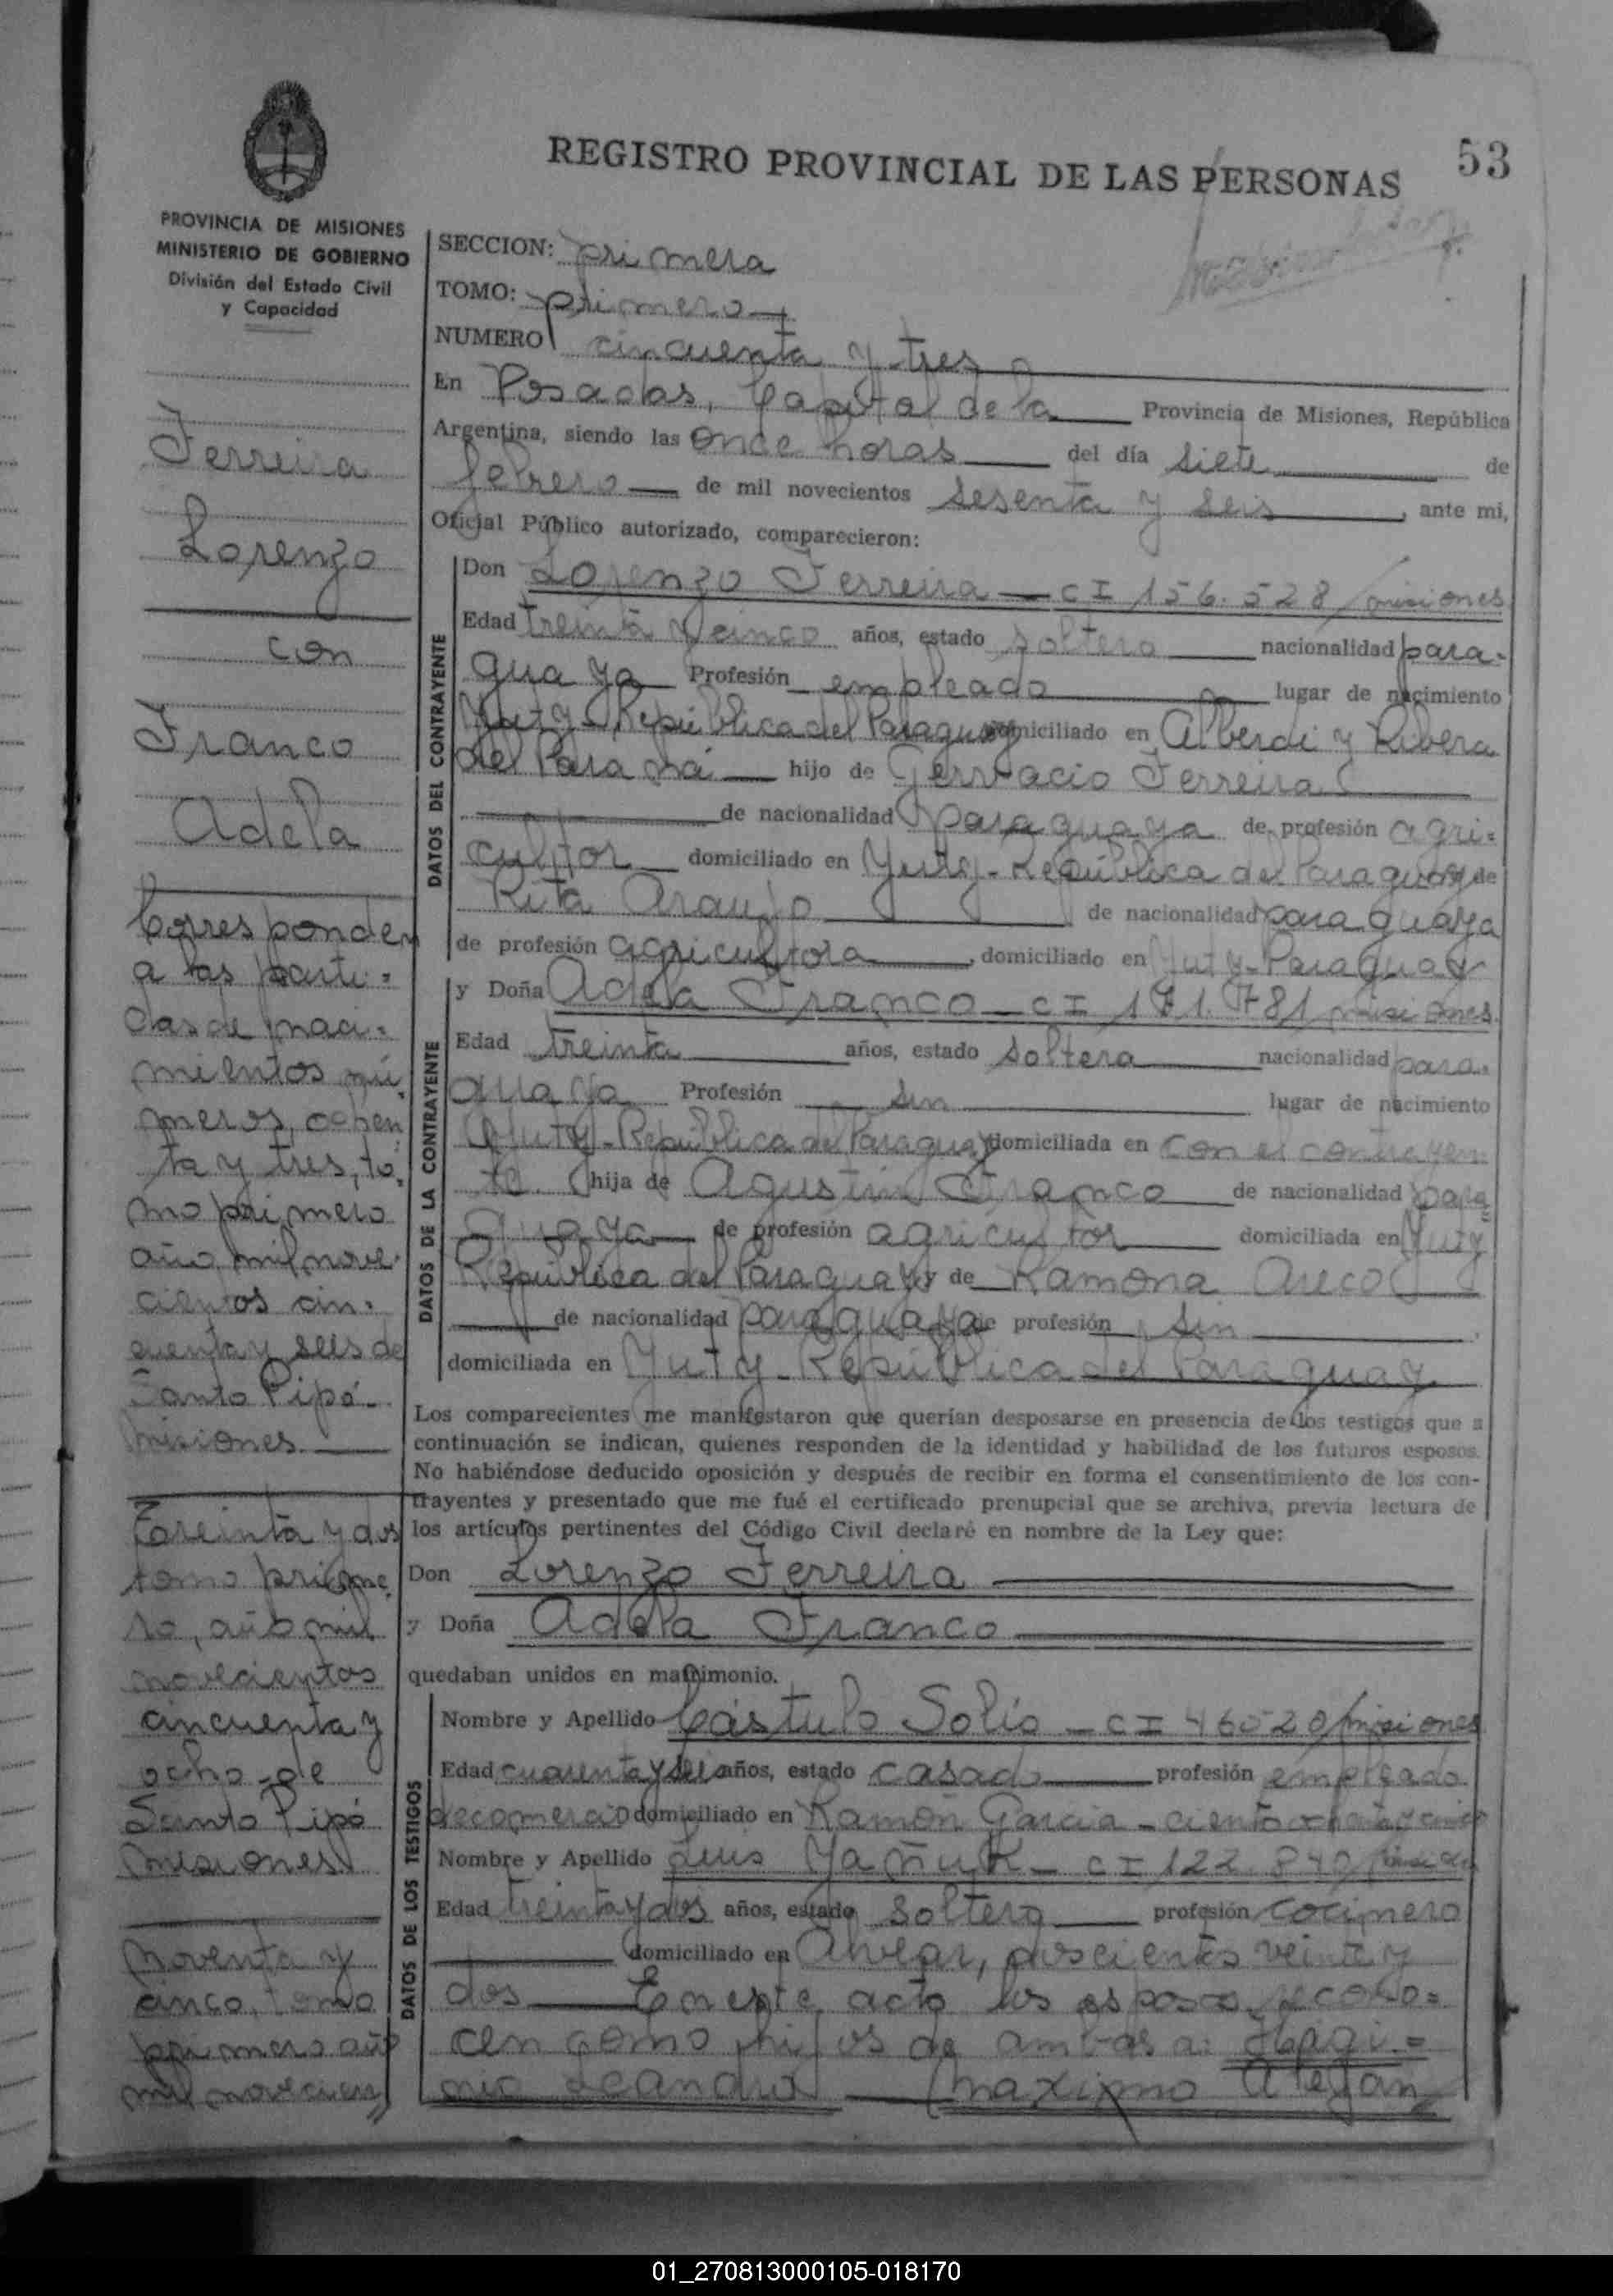 REGISTRO PROVINCIAL DE LAS PERSONAS
53
PROVINCIA DE MISIONES
MINISTERIO DE GOBIERNO
División del Estado Civil
y Capacidad
SECCION: primera
TOMO: primero
NUMERO cincuenta y tres
En Posadas, Capital de la Provincia de Misiones, República
Argentina, siendo las once horas del día siete de
febrero de mil novecientos sesenta y seis, ante mi,
Oficial Público autorizado, comparecieron:
DATOS DEL CONTRAYENTE
Don Lorenzo Ferreira - CI 156.528/misiones
Edad treinta y cinco años, estado soltero nacionalidad para-
guaya Profesión empleado lugar de nacimiento
Yuty - República del Paraguay domiciliado en Alberdi y Ribera
del Paraná hijo de Gervacio Ferreira
de nacionalidad paraguaya de profesión agri-
cultor domiciliado en Yuty - República del Paraguay y de
Rita Araujo de nacionalidad paraguaya
de profesión agricultora, domiciliado en Yuty - Paraguay
DATOS DE LA CONTRAYENTE
y Doña Adela Franco - CI 171.781/misiones
Edad treinta años, estado soltera nacionalidad para-
guaya Profesión sin lugar de nacimiento
Yuty - República del Paraguay domiciliada en con el contrayen-
te hija de Agustín Franco de nacionalidad para=
guaya de profesión agricultor domiciliada en Yuty
República del Paraguay y de Ramona Areco
de nacionalidad paraguaya de profesión sin
domiciliada en Yuty - República del Paraguay
Los comparecientes me manifestaron que querían desposarse en presencia de los testigos que a
continuación se indican, quienes responden de la identidad y habilidad de los futuros esposos.
No habiéndose deducido oposición y después de recibir en forma el consentimiento de los con-
trayentes y presentado que me fué el certificado prenupcial que se archiva, previa lectura de
los artículos pertinentes del Código Civil declaré en nombre de la Ley que:
Don Lorenzo Ferreira
y Doña Adela Franco
quedaban unidos en matrimonio.
DATOS DE LOS TESTIGOS
Nombre y Apellido Cástulo Solis - CI 46520/misiones
Edad cuarenta y seis años, estado casado profesión empleado
de comercio domiciliado en Ramón Garcia - ciento ochenta y cinco
Nombre y Apellido Luis Yañuk - CI 122.840/
Edad treinta y dos años, estado soltero profesión cocinero
domiciliado en Alvear, doscientos veinte y
dos En este acto los esposos recono=
cen como hijos de ambos a: Higi=
nio Leandro Maximo Atejan
Ferreira
Lorenzo
con
Franco
Adela
Corresponden
a las parti=
das de naci=
mientos nú
meros, ochen
ta y tres, to
mo primero
año mil nove
cientos cin=
cuenta y seis de
Santo Pipó
misiones.
Treinta y dos
tomo prime
ro, año mil
novecientos
cincuenta y
ocho de
Santo Pipó
misiones
Noventa y
cinco, tomo
primero año
mil novecien
01_270813000105-018170